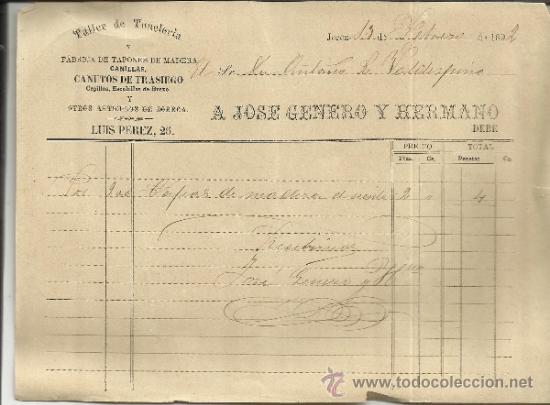 Taller de Tonelería
Y
FÁBRICA DE TAPONES DE MADERA
CANILLAS,
CANUTOS DE TRASIEGO
Cepillos, Escobillas de Brezo
Y
OTROS ARTÍCULOS DE BODEGA.
LUIS PEREZ, 26.
Jerez 13 de Febrero de 1892
Sr Dn Antonio R. Valdespino
A JOSE GENERO Y HERMANO
DEBE
PRECIO TOTAL
Ptas. Cs. Pesetas Cs.
Por 200 Tapas de madera el ciento 2 " 4
Recibimos
José Genero y Hno
www.todocoleccion.net